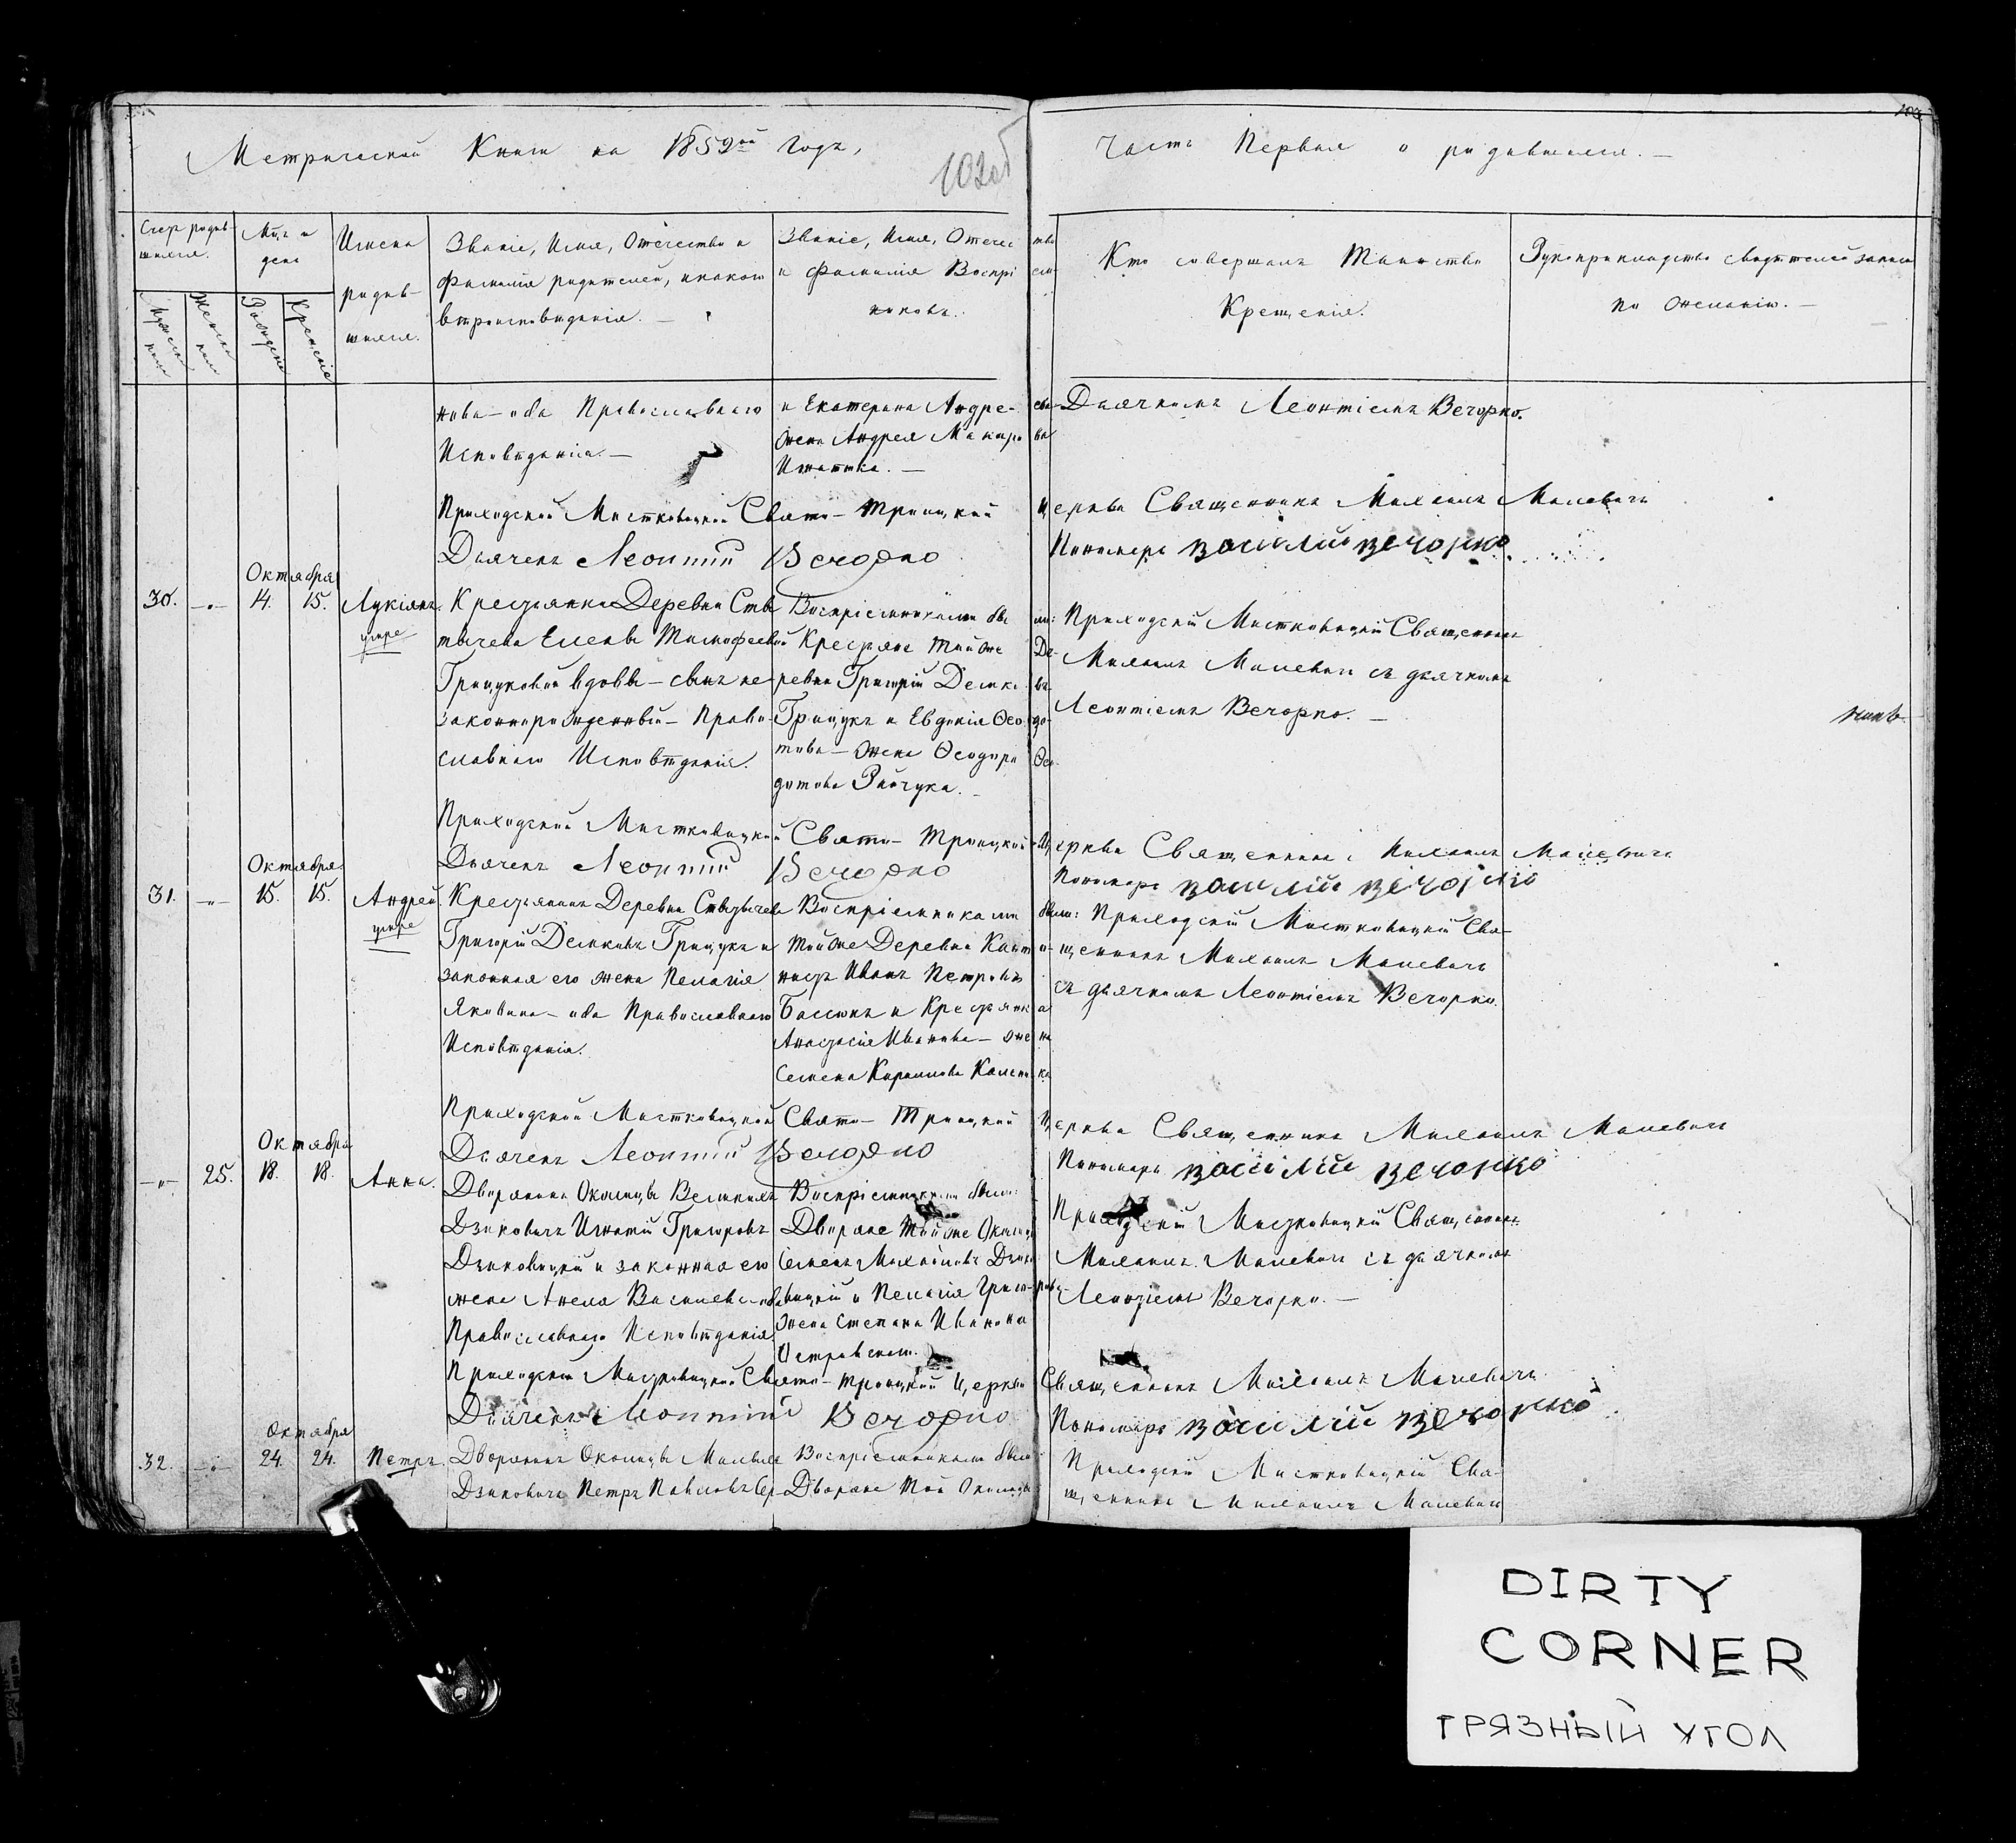 Метрической Книги на 1859ый Годъ,
102об
Часть Первая о родившихся.
Счетъ родив-
шихся.
Мужеска
Женска
Мцъ и
день
Рожденія
Крещенія
Имена
родив-
шихся.
Званіе, Имя, Отечество и
Фамилія родителей, и какого
вѣроисповѣданія.
Званіе, Имя, Отечество
и Фамилія Воспріем-
никовъ.
Кто совершалъ Таинство
Крещенія.
Рукоприкладство свидѣтелей записи
по желанію.
нова – оба Православнаго
Исповѣданія. –
и Екатерина Андреева
жена Андрея Макарова
Дьячкомъ Леонтіемъ Вечорко.
Приходской Мистковицкой Свято-Троицкой Церкви Священникъ Михаилъ Малевичъ
Дьячекъ Леонтій Вечорко Пономарь Василій Вечорко
Октября
30. 14. 15. Лукіянъ.
умре
Крестьянки Деревни Ств
тычева Елены Тимофеевой
Грицуковой вдовы – сынъ не-
законнорожденный – Право-
славнаго Исповѣданія.
Воспріемниками были:
Крестьяне той же Де-
ревни Григорій Демковъ
Грицукъ и Евдокія Ѳеодо-
това – жена Ѳеодора Ѳео-
дотова Райчука.
Приходскій Мистковицкій Священникъ
Михаилъ Малевичъ съ дьячкомъ
Леонтіемъ Вечорко. –
Приходской Мистковицкой Свято-Троицкой Церкви Священникъ Михаилъ Малевичъ
Дьячекъ Леонтій Вечорко Пономарь Василій Вечорко
Октября
31. 15. 15. Андрей.
умре
Крестьянинъ Деревни Ствтычева
Григорій Демковъ Грицукъ и
законная его жена Пелагія
Яковова – оба Православнаго
Исповѣданія.
Воспріемниками были:
той же Деревни Канто-
нистъ Иванъ Петровъ
Басюкъ и Крестьянка
Анастасія Иванова – жена
Семена Кирилова
Приходскій Мистковицкій Свя-
щенникъ Михаилъ Малевичъ
съ дьячкомъ Леонтіемъ Вечорко.
Приходской Мистковицкой Свято-Троицкой Церкви Священникъ Михаилъ Малевичъ
Дьячекъ Леонтій Вечорко Пономарь Василій Вечорко
Октября
25. 18. 18. Анна.
Дворянинъ Околицы Великихъ
Дзиковичъ Игнатій Григоровъ
Дзиковицкій и законная его
жена Анеля Васильева – оба
Православнаго Исповѣданія.
Воспріемниками были:
Дворяне той же Околицы
Семенъ Михайловъ Дзико-
вицкій и Пелагія Григорова
жена Степана Иванова
Островскаго.
Приходскій Мистковицкій Священникъ
Михаилъ Малевичъ съ дьячкомъ
Леонтіемъ Вечорко. –
Приходской Мистковицкой Свято-Троицкой Церкви Священникъ Михаилъ Малевичъ
Дьячекъ Леонтій Вечорко Пономарь Василій Вечорко
Октября
32. 24. 24. Петръ.
Дворянинъ Околицы Малыхъ
Дзиковичъ Петръ Павловъ Сер-
Воспріемниками были
Дворяне той Околицы
Приходскій Мистковицкій Свя-
щенникъ Михаилъ Малевичъ
DIRTY
CORNER
ГРЯЗНЫЙ УГОЛ